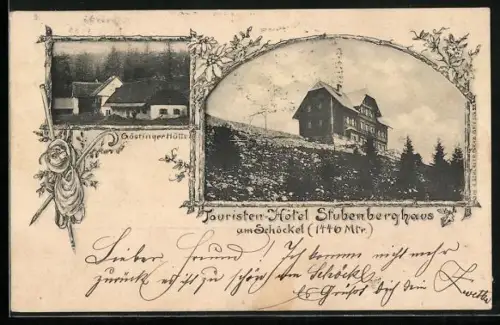 Göstinger Hütte
Touristen-Hôtel Stubenberghaus
am Schöckel (1446 Mtr.)
Lieber Freund! Ich komme nicht mehr
zurück es ist zu schön am Schöckl
Es Grüßt dich dein